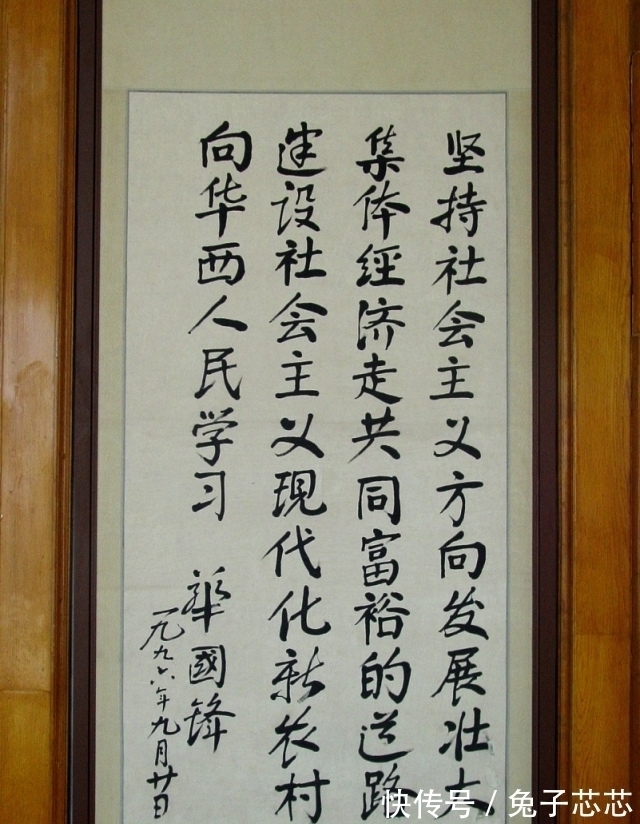 坚持社会主义方向发展壮大
集体经济走共同富裕的道路
建设社会主义现代化新农村
向华西人民学习
華國锋
一九九六年九月廿日
快传号／兔子芯芯